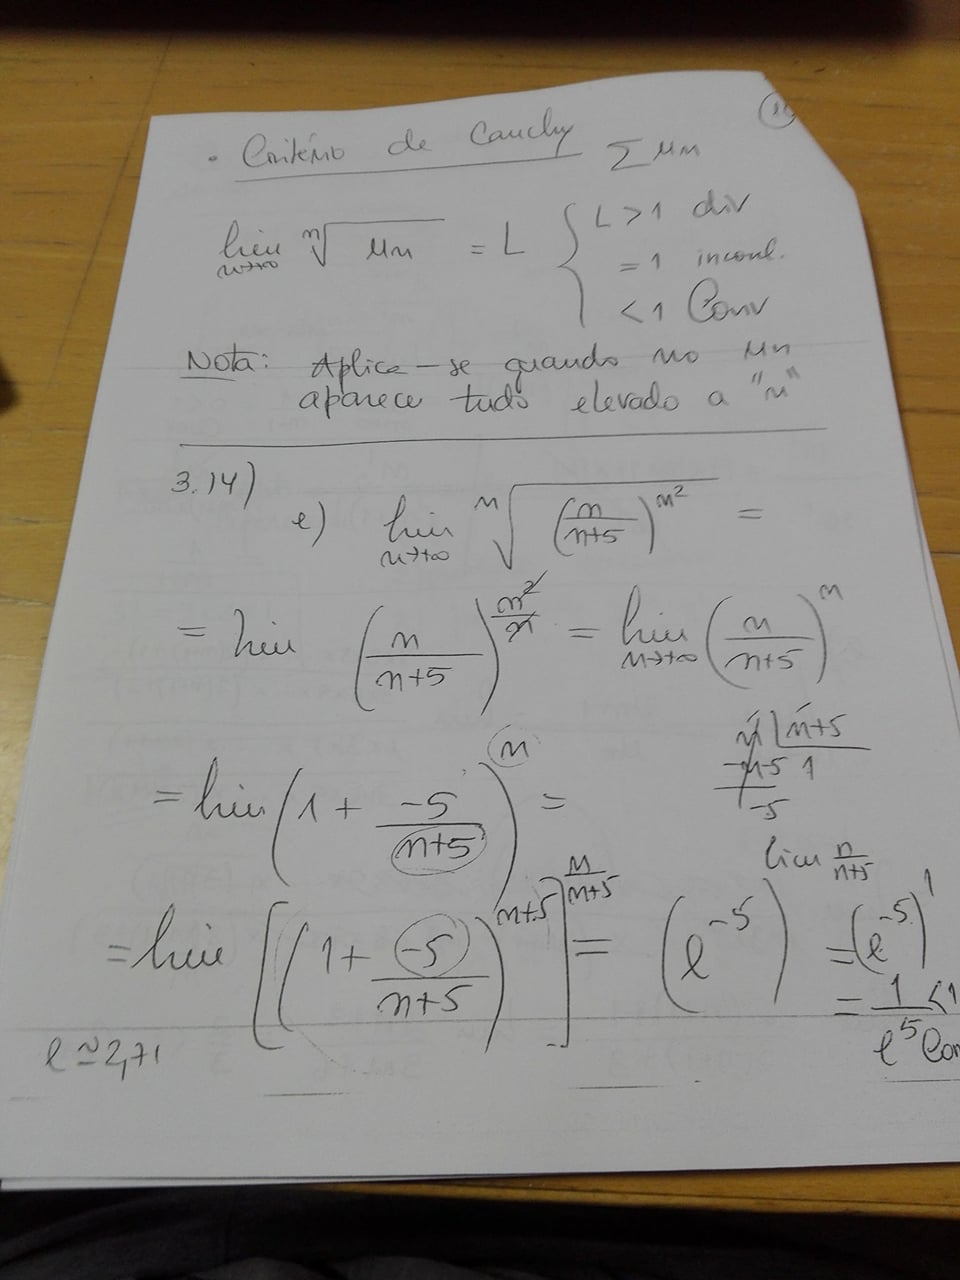 • Critério de Cauchy Σ un
lim n→+∞ ⁿ√un = L { L > 1 div
= 1 inconl.
< 1 Conv
Nota: Aplica-se quando no un
aparece tudo elevado a "n"
3.14)
e) lim n→+∞ ⁿ√(n/(n+5))^n² =
= lim (n/(n+5))^(n²/n) = lim n→+∞ (n/(n+5))^n
n | n+5
-n-5 1
-5
= lim (1 + -5/(n+5))^n =
= lim [(1 + -5/(n+5))^(n+5)]^(n/(n+5)) = (e^-5)^(lim n/(n+5)) = (e^-5)^1
= 1/e^5 < 1
e ≃ 2,71